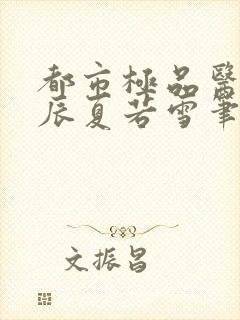 都市極品醫
辰夏若雪筆
文振昌